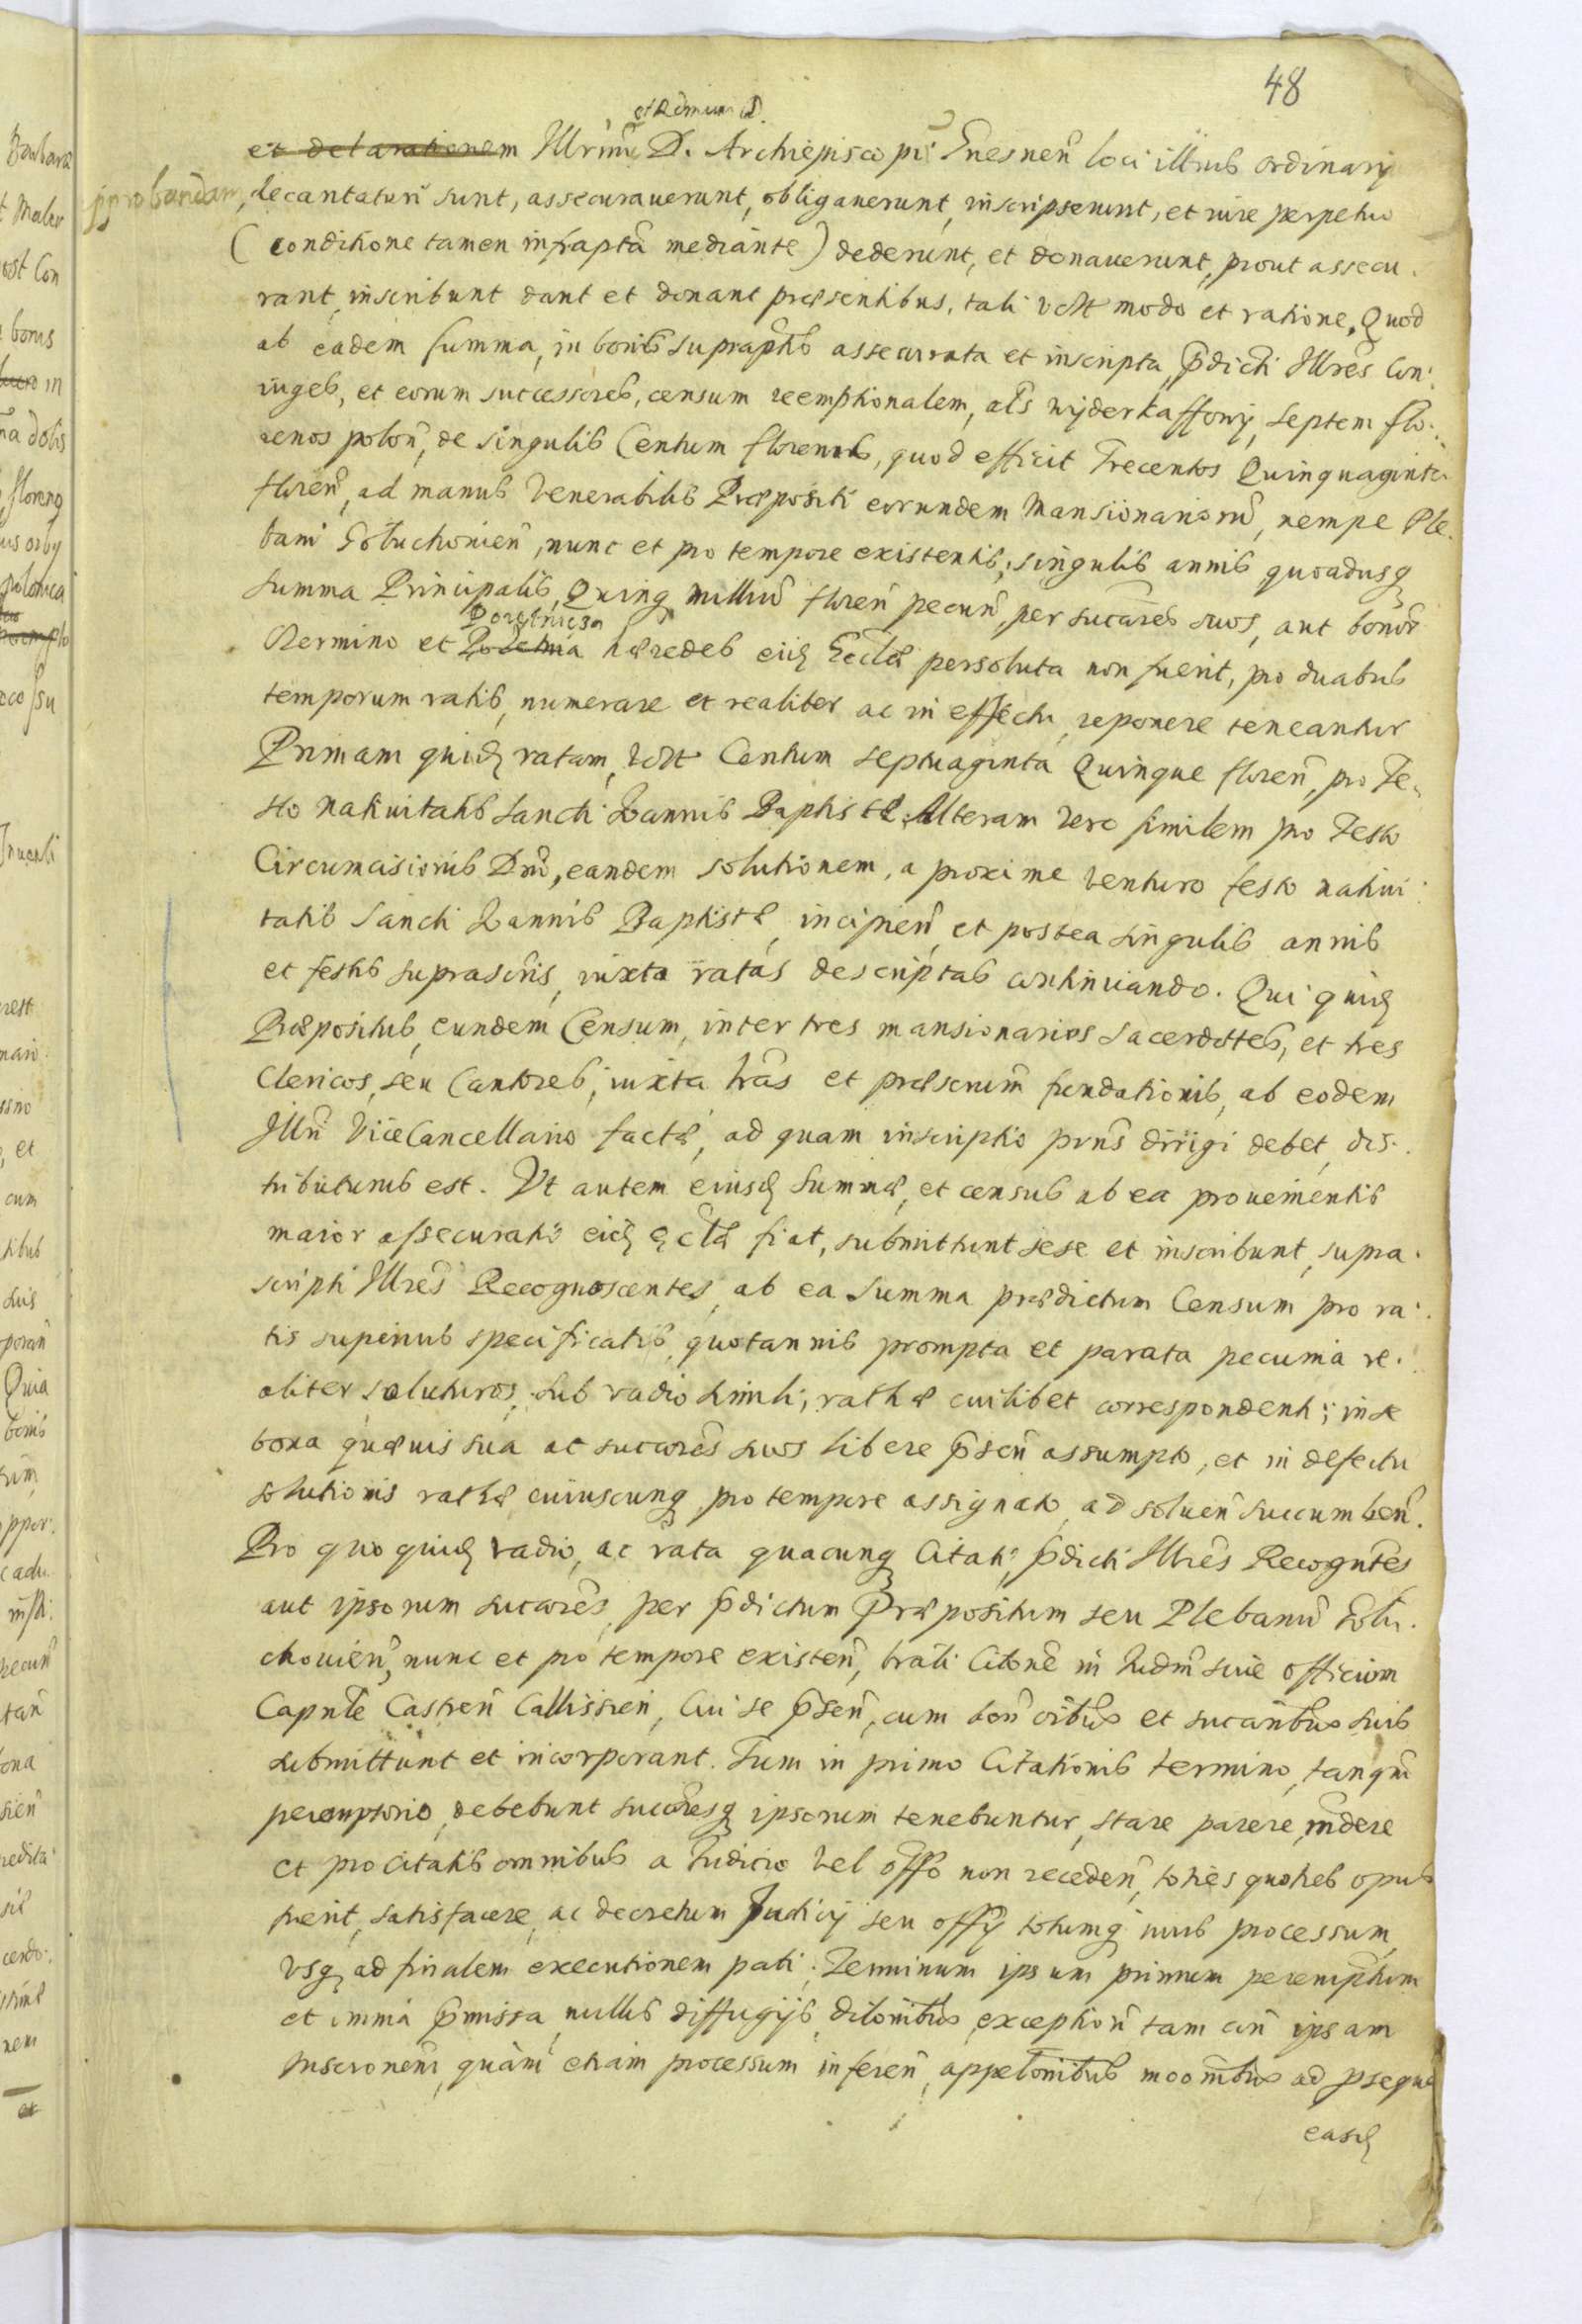 48
et Rdmum D.
et declarationem Illrmi D. Archiepiscopi Gnesnen̄ loci illius ordinarij
approbandam, decantaturi sunt, assecurauerunt, obligauerunt, inscripserunt, et iure perpetuo
(conditione tamen infrapta mediante) dederunt, et donauerunt, prout assecu.
rant, inscribunt dant et donant præsentibus, tali vdt modo et ratione, Quod
ab eadem summa, in bonis supraptis assecurata et inscripta, p̄dicti Illres Con:
iuges, et eorum successores, censum reemptionalem, als wyderkaffowy, septem flo:
renos polon̄, de singulis Centum florenis, quod efficit Trecentos Quinquaginta
floren̄, ad manus Venerabilis Præpositi eorundem Mansionariorū, nempe Ple.
bani Goluchouien̄, nunc et pro tempore existentis, singulis annis quoadusq
summa Principalis, Quinq milliū floren̄ pecun̄, per succāres suos, aut bonor̄
Dorotnicza
Kermino et haeredes eiid Ecclæ persoluta non fuerit, pro duabus
temporum ratis, numerare et realiter ac in effectu, reponere teneantur
Primam quid ratam, vdt Centum septuaginta Quinque floren̄, pro Fe.
sto natiuitatis Sancti Ioannis Baptistæ, Alteram vero similem pro Festo
Circumcisionis Dn̄i, eandem solutionem, a proxime venturo festo natiui:
tatis Sancti Ioannis Baptistæ, incipien̄, et postea singulis annis
et festis suprascris, iuxta ratas descriptas continuando. Qui quid
Præpositus, eundem Censum, inter tres mansionarios sacerdotes, et tres
Clericos, seu Cantores, iuxta lras et præscrium fundationis, ab eodem
Illri ViceCancellario factæ, ad quam inscriptio prns dirigi debet, dis.
tributurus est. Vt autem eiusd Summæ, et census ab ea prouenientis
maior assecuratio eid Ecclæ fiat, submittunt sese et inscribunt, supra.
scripti Illres Recognoscentes, ab ea Summa prædictum Censum pro ra:
tis superius specificatis, quotannis prompta et parata pecunia re.
aliter soluturos, sub vadio simili, ratæ cuilibet correspondenti, in se
bona quæuis sua ac succāres suos libere p̄sen̄ assumpto, et in defectu
solutionis ratæ cuiuscunq pro tempore assignato, ad soluen̄ succumben̄.
Pro quo quid vadio, ac rata quacunq Citati, p̄dicti Illres Recogntes
aut ipsorum succāres, per p̄dictum Præpositum seu Plebanū Golu.
chouien̄, nunc et pro tempore existen̄, lrali Citone in Iudm siue officium
Capnle Castren̄ Callissien̄, Cui se p̄sen̄, cum bon̄ oibus et succaribus suis
submittunt et incorporant. Tum in primo Citationis termino, tanqm
peremptorio, debebunt succāresq ipsorum tenebuntur, stare parere rn̄dere
et pro citatis omnibus a Iudicio vel offo non receden̄, toties quoties opus
fuerit, satisfacere, ac decretum Judicij seu offij totumq iuris processum
vsq ad finalem executionem pati. Terminum ipsum primum peremptum
et omnia p̄missa, nullis diffugijs, dilonibus, exception̄ tam con̄ ipsam
Inscronem, quam etiam processum inferen̄, appelonibus moonibus ad pseque
easd